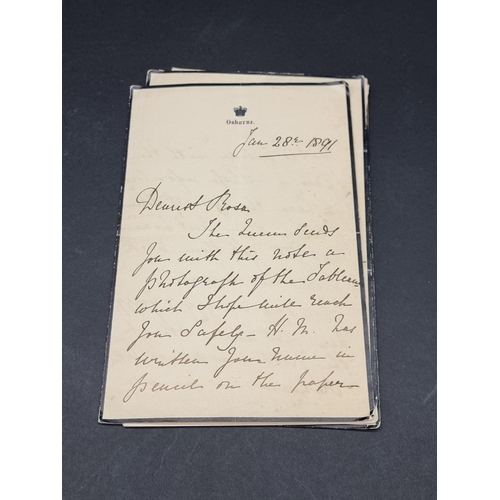 Osborne.
Jan 28th 1891
Dearest Rosa
The Queen sends
you with this note a
photograph of the Tableau
which I hope will reach
you safely - H. M. has
written your name in
pencil on the paper